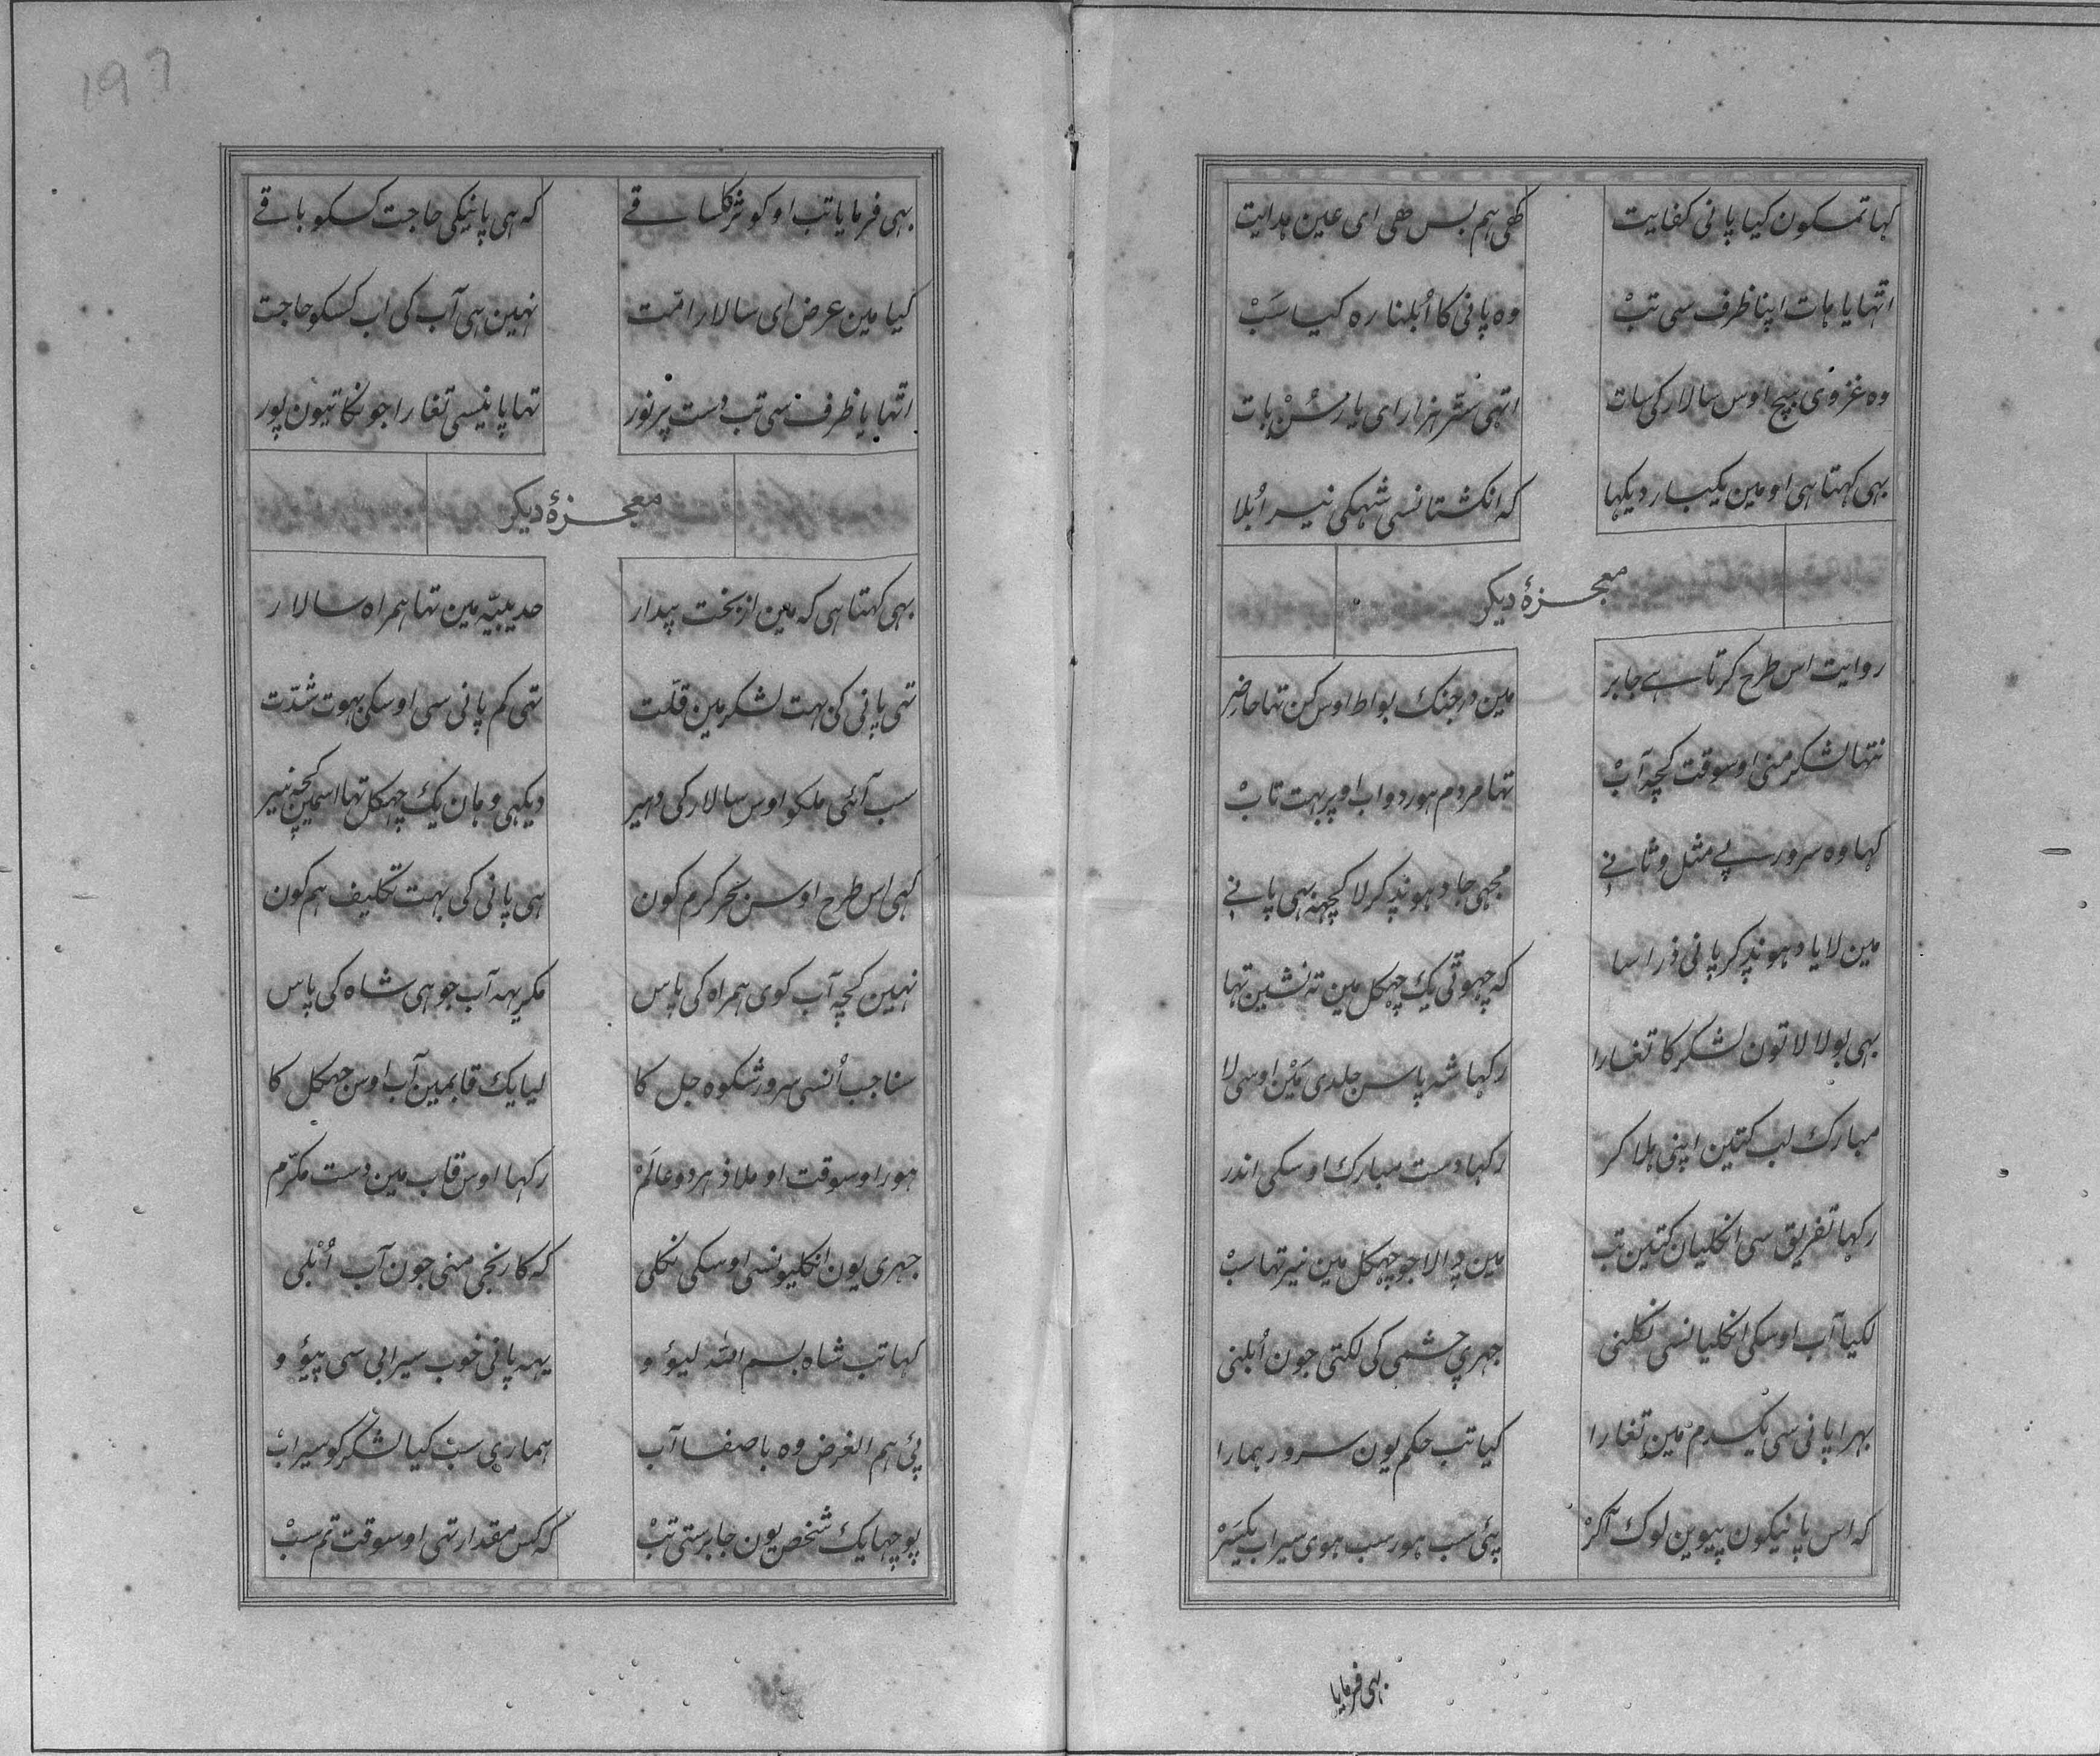 کہا تمکون کیا پانی کفایت کهی ہم بس هی ای عین ہدایت
اتہایا ہات اپنا ظرف سی تبْ وہ پانی کا اُبلنا رہ کیا سَبْ
وہ غزوی بیچ اوس سالار کی سات اتہی ستّر ہزار ای یار سُنْ بات
بہی کہتا ہی او مین یکبار دیکہا کہ انکشتانسی شہکی نیر اُبلا
معجزۂ دیکر
روایت اس طرح کرتا ہے جابر مین در جنک بواط اوس کن تہا حاضر
نتہا لشکر منی اوسوقت کچہ آبْ تہا مردم ہور دواب اوپر بہت تابْ
کہا وہ سرور بے مثل و ثانے مجہی جا دہونڈ کر لا کچہنہ ہی پانے
مین لایا دہونڈ کر پانی ذرا سا کہ چہوتی یک چہکل مین تہ نشین تہا
بہی بولا لا تون لشکر کا تغارا رکہا شہ پاس جلدی مَیْن اوسی لا
مبارک لب کتین اپنی ہلا کر رکہا دست مبارک اوسکی اندر
رکہا تفریق سی انکلیان کتین تب مین ڈالا جو چہکل مین نیر تہا سبْ
لکیا آب اوسکی انکلیانسی نکلنی جہری چشمی کی لکتی جون اُبلنی
بہرا پانی سی یکدم مین تغارا کیا تب حکم یون سرور ہمارا
کہ اس پانیکون پیوین لوک آکرْ پئی سب ہور سب ہوی سیراب یکسَرْ
بہی فرمایا
197
بہی فرمایا تب او کوثر کا ساقے کہ ہی پانیکی حاجت کسکو باقے
کیا مین عرض ای سالار امّت نہین ہی آب کی اب کسکو حاجت
اتہایا ظرف سی تب دست پرنور تہا پانیسی تغارا جونکا تیون پور
معجزۂ دیکر
بہی کہتا ہی کہ مین از بخت بیدار حدیبیّہ مین تہا ہمراہ سالار
تہی پانی کی بہت لشکر مین قلّت تہی کم پانی سی اوسکی بہوت شدّت
سب آئی ملکو اوس سالار کی دہیر دیکہی وہان یک چہکل تہا اسمین کچہ نیر
کہی اس طرح اوس بحر کرم کون ہی پانی کی بہت تکلیف ہم کون
نہین کچہ آب کوی ہمراہ کی پاس مکر یہہ آب جو ہی شاہ کی پاس
سنا جب اُنسی سرور شکوہ جل کا لیا یک قابمین آب اوس چہکل کا
ہور اوسوقت او ملاذ ہر دو عالَمْ رکہا اوس قاب مین دست مکرّم
جہری یون انکلیونسی اوسکی نکلی کہ کارنجی منی جون آب اُبْلی
کہا تب شاہ بسم اللہ لیؤ و یہہ پانی خوب سیرابی سی پیؤ و
پئی ہم الغرض وہ باصفا آب ہماری سب کیا لشکر کو سیرابْ
پوچہا یک شخص یون جابر ستی تبْ کہ کس مقدار تہی اوسوقت تم سبْ